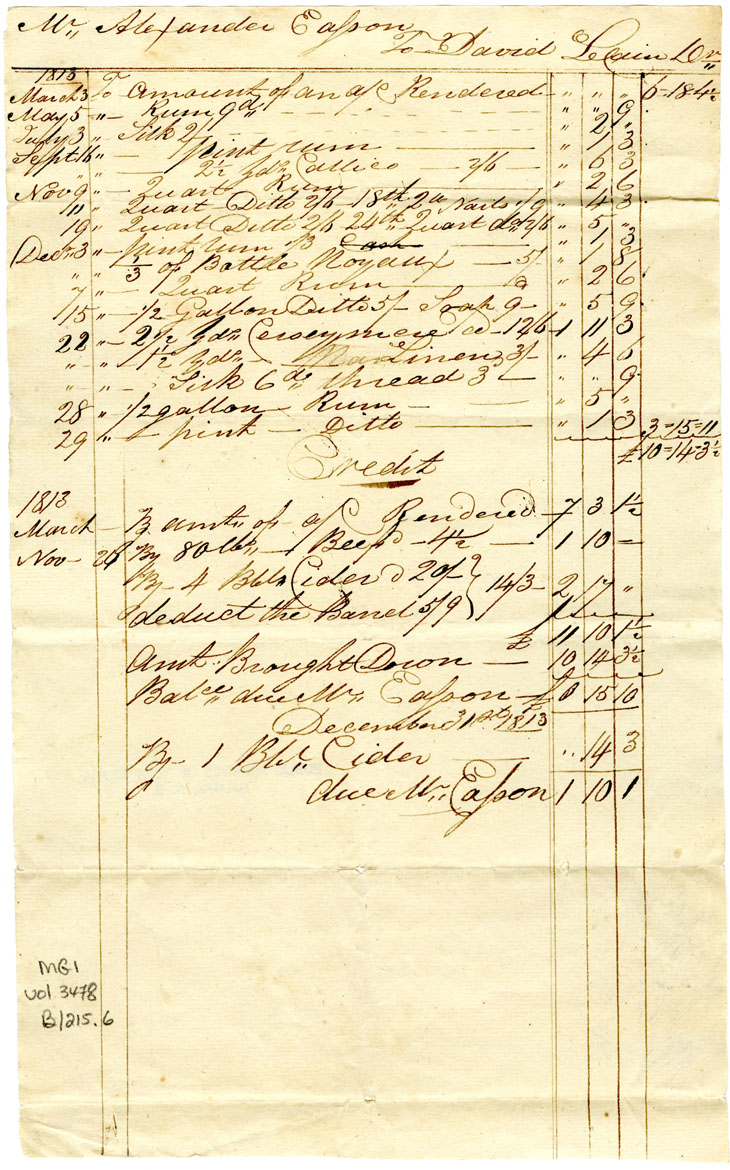 Mr,, Alexander Eason
To David Lecain Dr
1813
March 3 To Amount of an a/c Rendered " " " 6-18-4½
May 5 " Rum 9d " " 9
July 3 " Silk 2/ " 2 "
Sept 16 " pint rum " 1 3
" 2½ yds Callico 2/6 " 6 3
Nov 9 " Quart Rum " 2 6
11 " Quart Ditto 2/6 18th 2d Nails 1/9 " 4 3
19 " Quart Ditto 2/6 24th Quart do 2/6 " 5 "
Decr 3 " pint rum 1/3 Cash " 1 3
" " 1/3 of Bottle Noyaux 5/ " 1 8
7 " Quart Rum " 2 6
15 " 1/2 Gallon Ditto 5/ Soap 9 " 5 9
22 " 2½ yds Cerseymere @ 12/6 1 11 3
" " 1½ yds Linen 3/ " 4 6
" " Silk 6d thread 3 " " 9
28 " 1/2 gallon Rum " 5 "
29 " pint Ditto " 1 3 3=15=11
£10=14=3½
Credit
1813
March By amt,, of a/c Rendered 7 3 1½
Nov 26 By 80 lbs Beef @ 4½ 1 10 -
By 4 Bbls Cider @ 20/ } 14/3 2 17 "
deduct the Barrel 5/9
£ 11 10 1½
Amt. Brought Down 10 14 3½
Balce,, due Mr,, Eason £ 0 15 10
December 31st 1813
By 1 Bbl,, Cider " 14 3
due Mr,, Eason 1 10 1
MG1
vol 3478
B/215.6